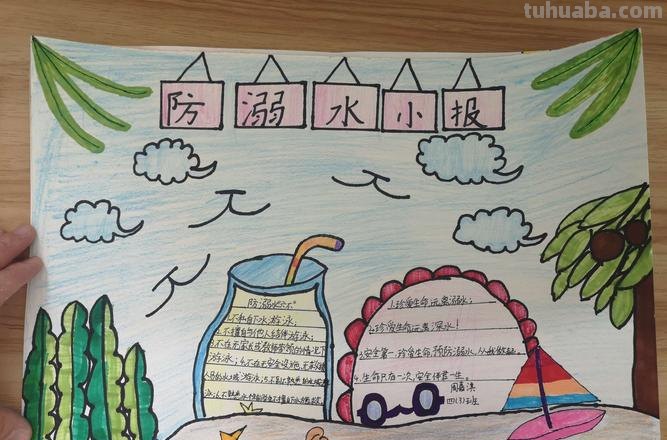 tuhuaba.com
防溺水小报
防溺水六不
1.不私自下水游泳；
2.不擅自与他人结伴游泳；
3.不在无家长或教师带领的情况下
游泳；4.不在无安全设施、无救援
人员的水域游泳；5.不到不熟悉的水域游
泳；
1.珍爱生命，远离溺水；
2.珍爱生命，远离深水！
3.安全第一，珍爱生命，预防溺水，从我做起。
4.生命只有一次，安全伴君一生。
四(3)班